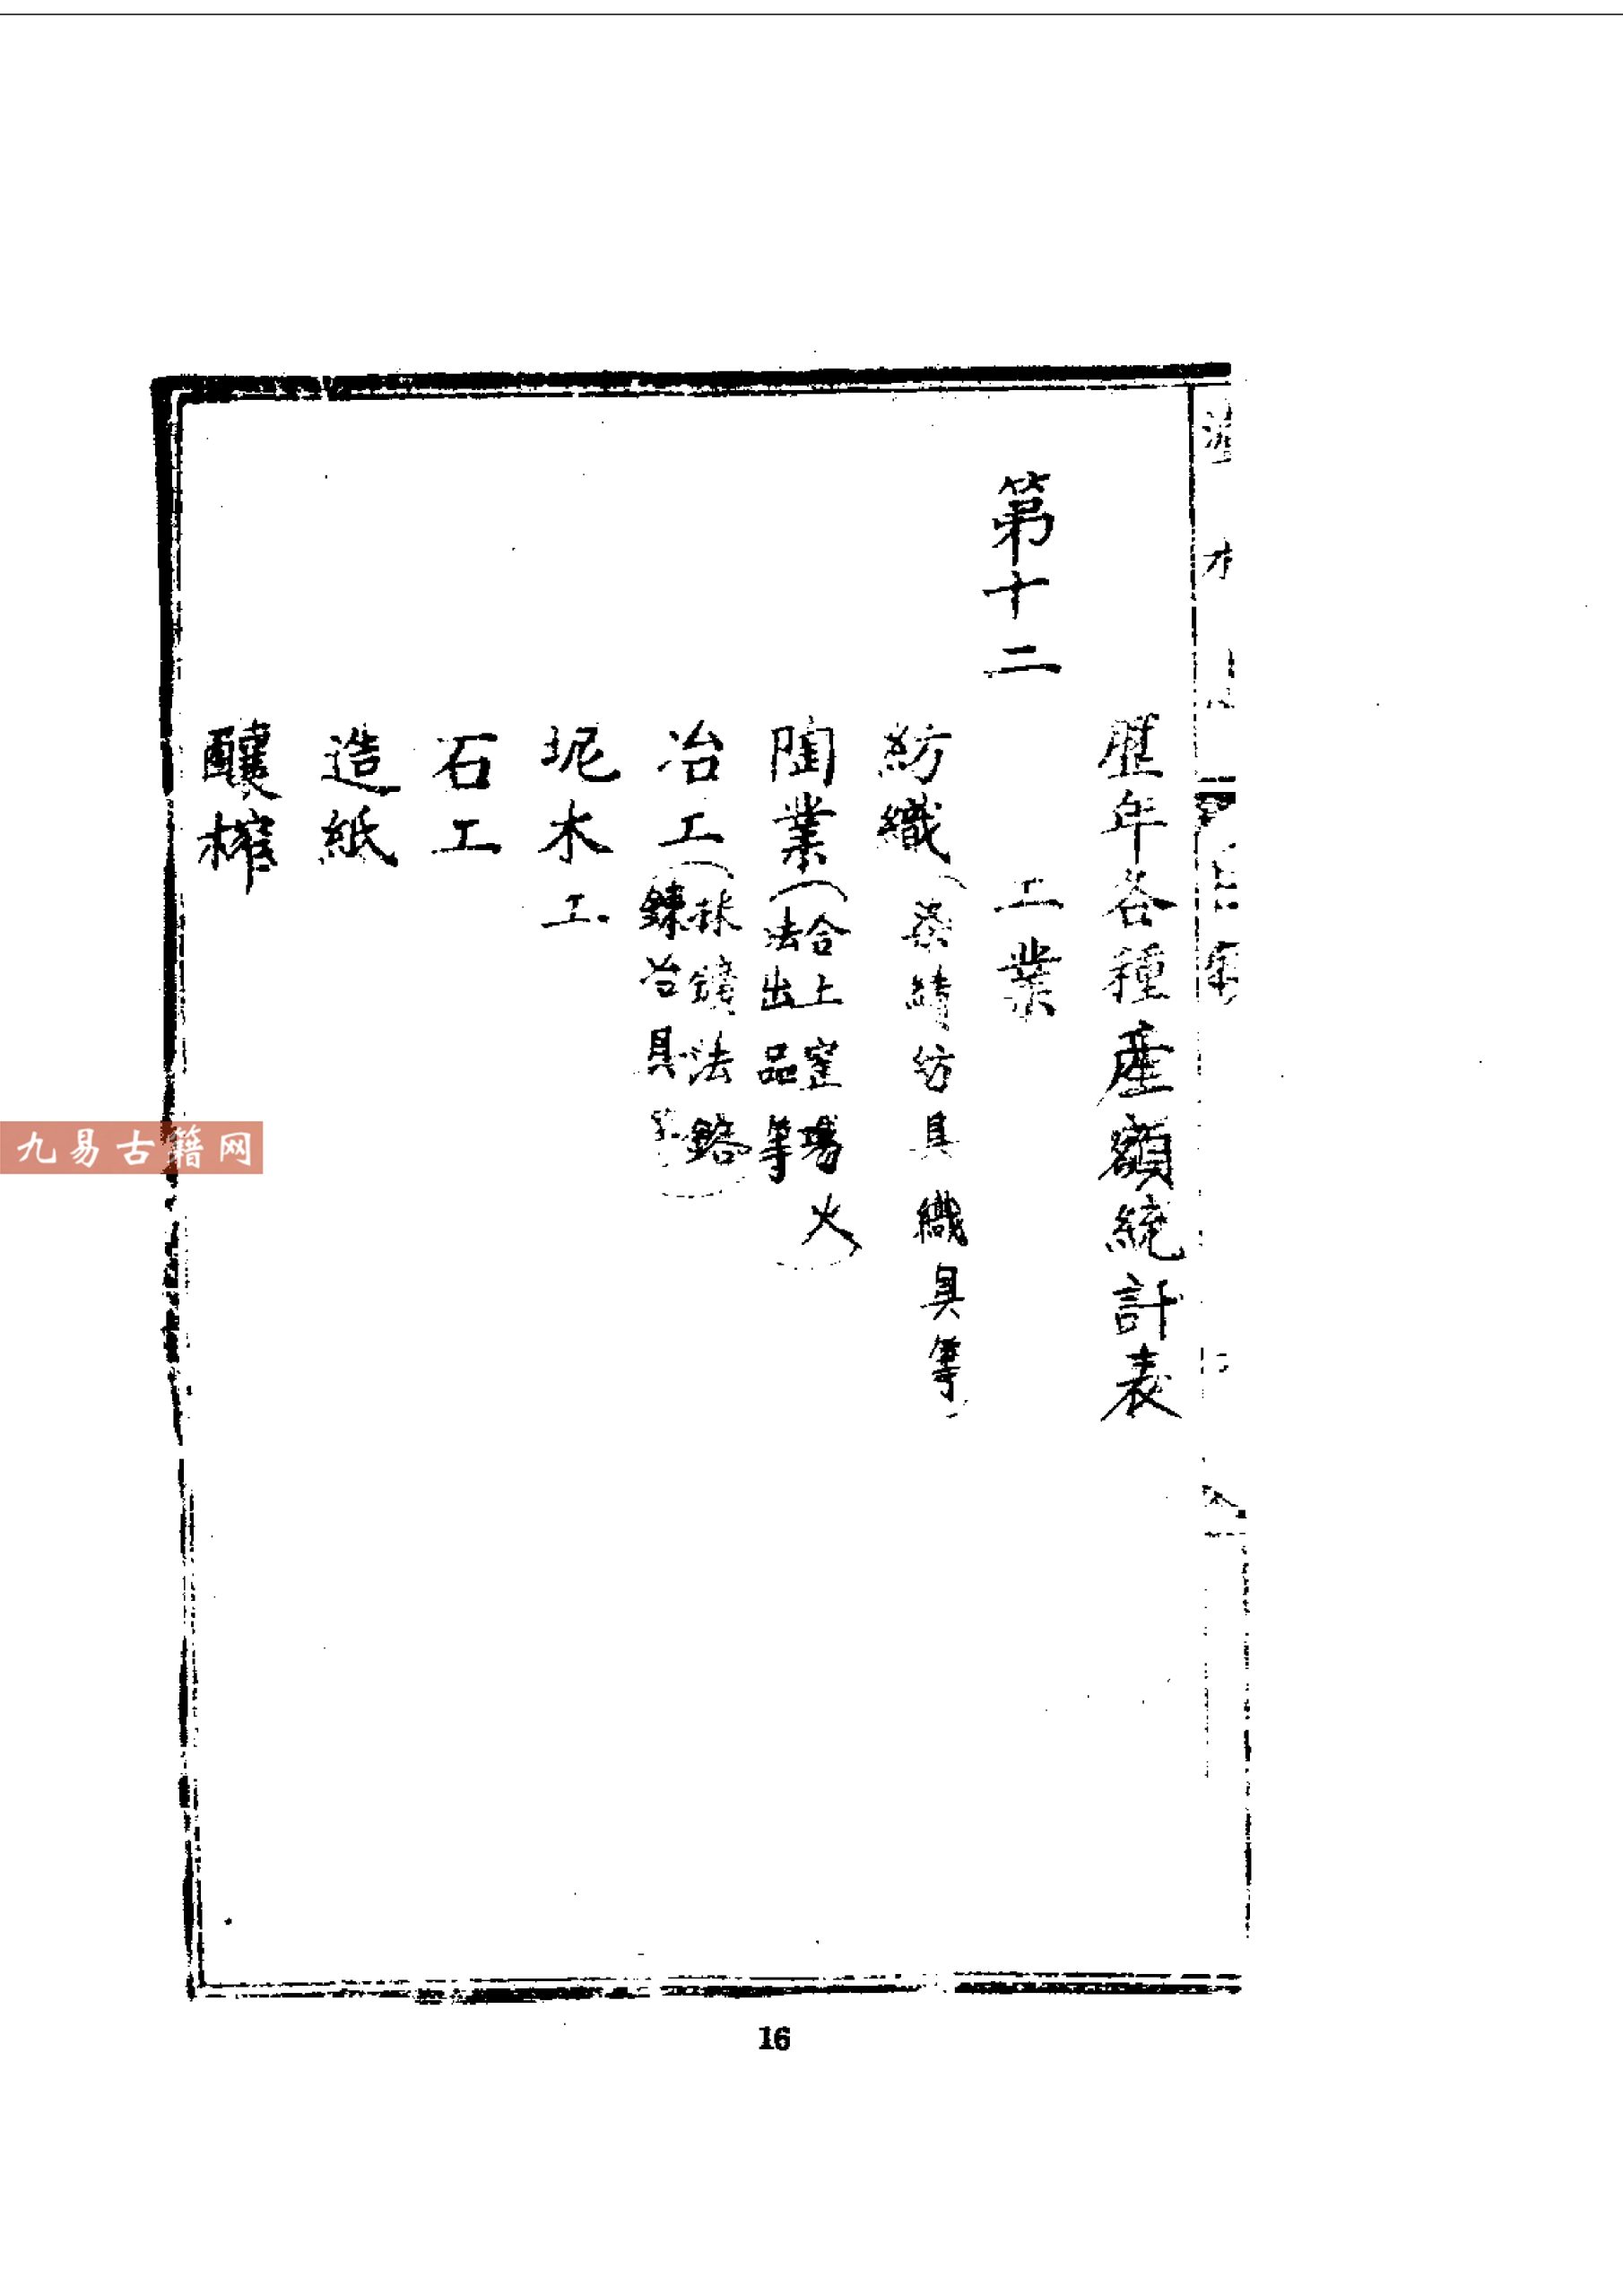 歷年各種產額統計表
第十二 工業
紡織（染績紡具織具等）
陶業（合上窰場火法出品等）
冶工（採鑛法鎔鍊冶具等）
坭木工
石工
造紙
釀榨
16
九易古籍网